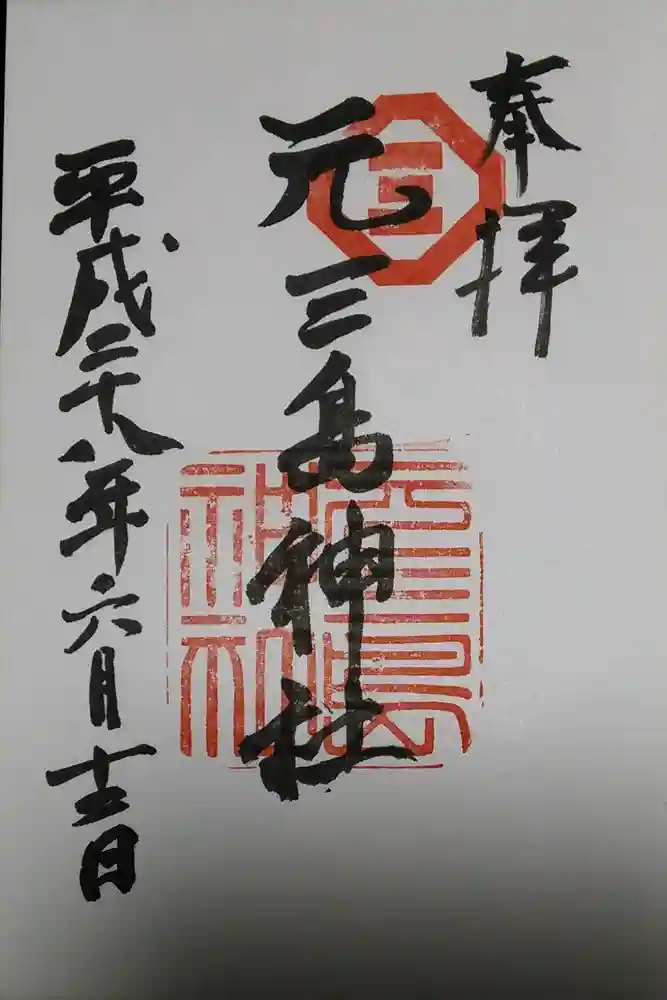 奉拝
元三島神社
三
元三島
神社
平成二十八年六月十五日